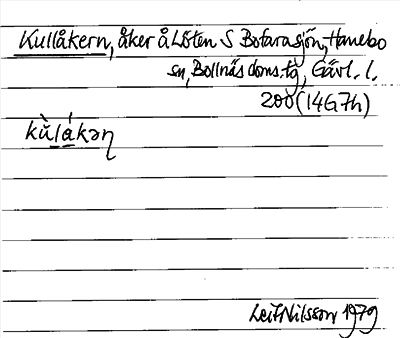 Kullåkern, åker å Löten S Bofarasjön, Hanebo
sn, Bollnäs doms. tg, Gävl. l.
200 (14G7h)
kùlákəɳ
Leif Nilsson 1979